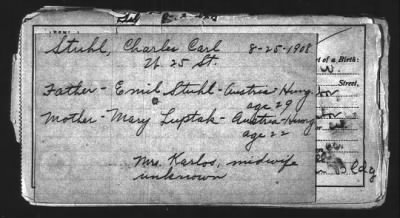 Stuhl, Charles Carl 8-25-1908
N 25 St.
Father - Emil Stuhl - Austria Hung.
age 29
Mother - Mary Luptak - Austria-Hung
age 22
Mrs. Karlos, midwife
unknown
of a Birth:
Street,
Bldg